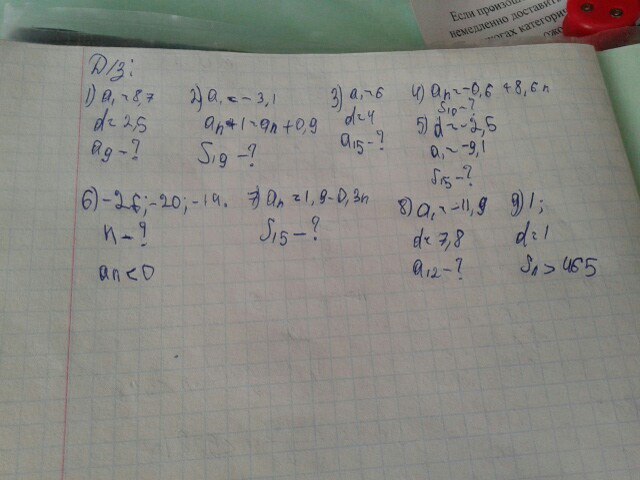 Если произво
немедленно доставит
логах категорич
Д/з:
1) a₁=8,7
d=2,5
a₉-?
2) a₁=-3,1
aₙ+1=aₙ+0,9
S₁₉-?
3) a₁=6
d=4
a₁₅-?
4) aₙ=-0,6+8,6n
S₁₀-?
5) d=-2,5
a₁=-9,1
S₁₅-?
6) -26;-20;-14.
n-?
aₙ<0
7) aₙ=1,9-0,3n
S₁₅-?
8) a₁=-11,9
d=7,8
a₁₂-?
9) 1;
d=1
Sₙ>465